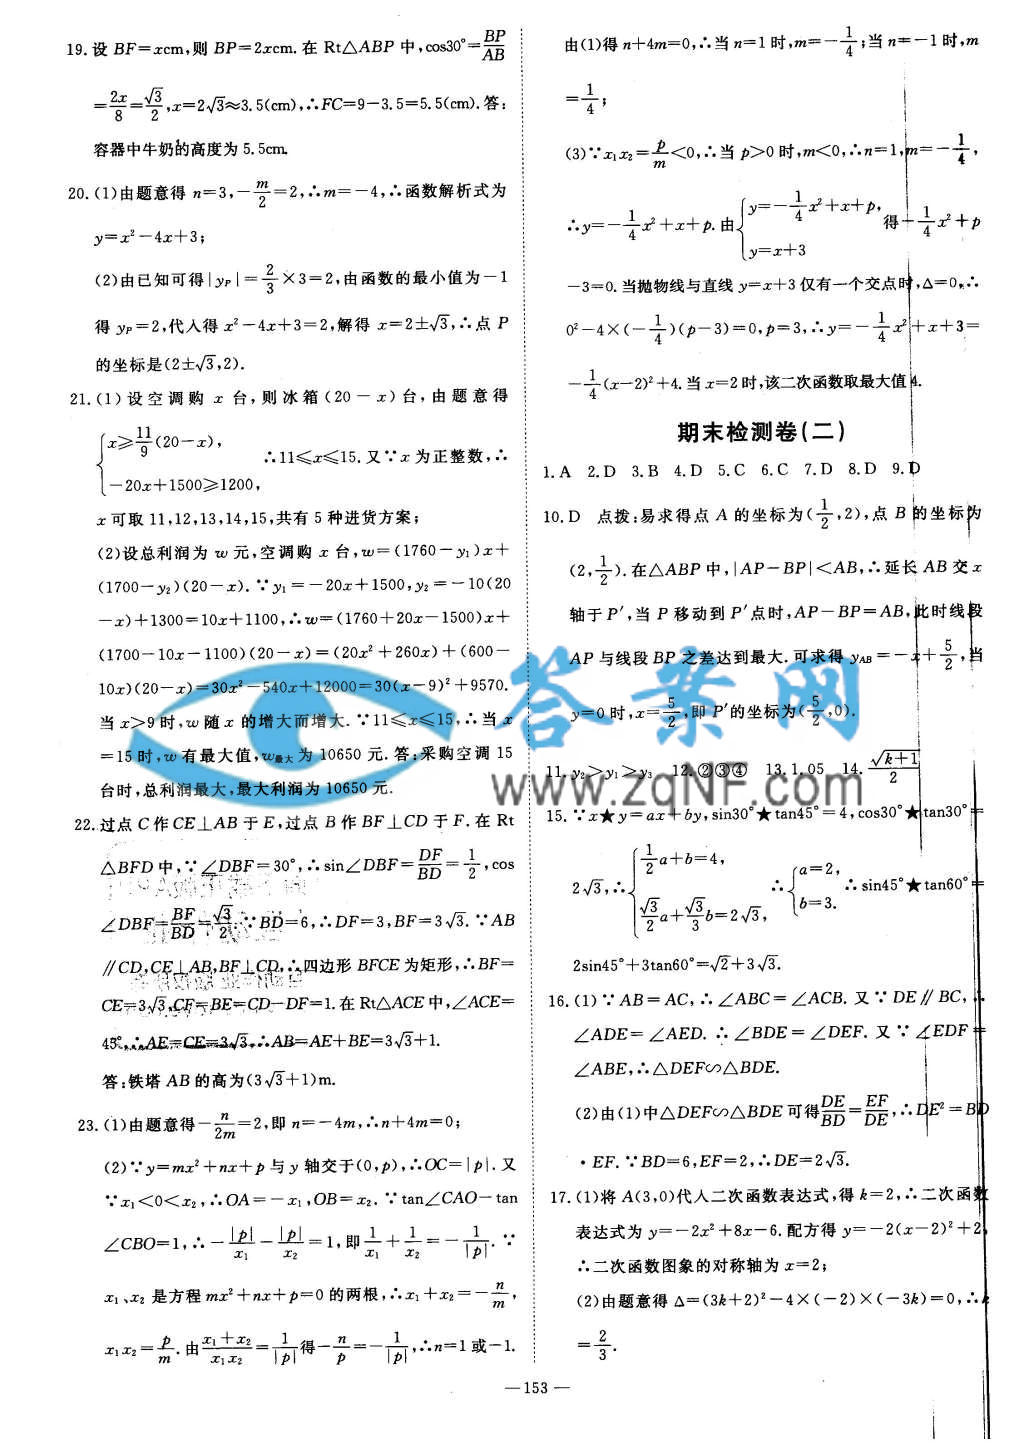 19. 设 BF=xcm,则 BP=2xcm. 在 Rt△ABP 中,cos30°=BP/AB
=2x/8=√3/2,x=2√3≈3.5(cm),∴FC=9-3.5=5.5(cm). 答:
容器中牛奶的高度为 5.5cm.
20. (1)由题意得 n=3,-m/2=2,∴m=-4,∴函数解析式为
y=x²-4x+3;
(2)由已知可得|y_P|=2/3×3=2,由函数的最小值为-1
得 y_P=2,代入得 x²-4x+3=2,解得 x=2±√3,∴点 P
的坐标是(2±√3,2).
21. (1) 设空调购 x 台,则冰箱(20-x)台,由题意得
{x≥11/9(20-x),
-20x+1500≥1200, ∴11≤x≤15. 又∵x 为正整数,∴
x 可取 11,12,13,14,15,共有 5 种进货方案;
(2)设总利润为 w 元,空调购 x 台,w=(1760-y₁)x+
(1700-y₂)(20-x). ∵y₁=-20x+1500,y₂=-10(20
-x)+1300=10x+1100,∴w=(1760+20x-1500)x+
(1700-10x-1100)(20-x)=(20x²+260x)+(600-
10x)(20-x)=30x²-540x+12000=30(x-9)²+9570.
当 x>9 时,w 随 x 的增大而增大. ∵11≤x≤15,∴当 x
=15 时,w 有最大值,w最大为 10650 元. 答:采购空调 15
台时,总利润最大,最大利润为 10650 元.
22. 过点 C 作 CE⊥AB 于 E,过点 B 作 BF⊥CD 于 F. 在 Rt
△BFD 中,∵∠DBF=30°,∴sin∠DBF=DF/BD=1/2,cos
∠DBF=BF/BD=√3/2. ∵BD=6,∴DF=3,BF=3√3. ∵AB
∥CD,CE⊥AB,BF⊥CD,∴四边形 BFCE 为矩形,∴BF=
CE=3√3,CF=BE=CD-DF=1. 在 Rt△ACE 中,∠ACE=
45°,∴AE=CE=3√3,∴AB=AE+BE=3√3+1.
答:铁塔 AB 的高为(3√3+1)m.
23. (1)由题意得-n/2m=2,即 n=-4m,∴n+4m=0;
(2)∵y=mx²+nx+p 与 y 轴交于(0,p),∴OC=|p|. 又
∵x₁<0<x₂,∴OA=-x₁,OB=x₂. ∵tan∠CAO-tan
∠CBO=1,∴-|p|/x₁-|p|/x₂=1,即1/x₁+1/x₂=-1/|p|. ∵
x₁、x₂ 是方程 mx²+nx+p=0 的两根,∴x₁+x₂=-n/m,
x₁x₂=p/m. 由(x₁+x₂)/(x₁x₂)=1/|p|得-n/p=-1/|p|,∴n=1 或-1.
由(1)得 n+4m=0,∴当 n=1 时,m=-1/4;当 n=-1 时,m
=1/4;
(3)∵x₁x₂=p/m<0,∴当 p>0 时,m<0,∴n=1,m=-1/4,
∴y=-1/4x²+x+p. 由{y=-1/4x²+x+p,
y=x+3 得-1/4x²+p
-3=0. 当抛物线与直线 y=x+3 仅有一个交点时,Δ=0,∴
0²-4×(-1/4)(p-3)=0,p=3,∴y=-1/4x²+x+3=
-1/4(x-2)²+4. 当 x=2 时,该二次函数取最大值 4.
期末检测卷(二)
1. A 2. D 3. B 4. D 5. C 6. C 7. D 8. D 9. D
10. D 点拨:易求得点 A 的坐标为(1/2,2),点 B 的坐标为
(2,1/2). 在△ABP 中,|AP-BP|<AB,∴延长 AB 交 x
轴于 P′,当 P 移动到 P′点时,AP-BP=AB,此时线段
AP 与线段 BP 之差达到最大. 可求得 y_AB=-x+5/2,当
y=0 时,x=5/2,即 P′的坐标为(5/2,0).
11. y₂>y₁>y₃ 12. ②③④ 13. 1.05 14. √(k+1)/2
15. ∵x★y=ax+by,sin30°★tan45°=4,cos30°★tan30°=
2√3,∴{1/2a+b=4,
√3/2a+√3/3b=2√3, ∴{a=2,
b=3. ∴sin45°★tan60°=
2sin45°+3tan60°=√2+3√3.
16. (1)∵AB=AC,∴∠ABC=∠ACB. 又∵DE∥BC,∴
∠ADE=∠AED. ∴∠BDE=∠DEF. 又∵∠EDF=
∠ABE,∴△DEF∽△BDE.
(2)由(1)中△DEF∽△BDE 可得DE/BD=EF/DE,∴DE²=BD
·EF. ∵BD=6,EF=2,∴DE=2√3.
17. (1)将 A(3,0)代入二次函数表达式,得 k=2,∴二次函数
表达式为 y=-2x²+8x-6. 配方得 y=-2(x-2)²+2,
∴二次函数图象的对称轴为 x=2;
(2)由题意得 Δ=(3k+2)²-4×(-2)×(-3k)=0,∴k
=2/3.
—153—
答案网
www.zqNF.com